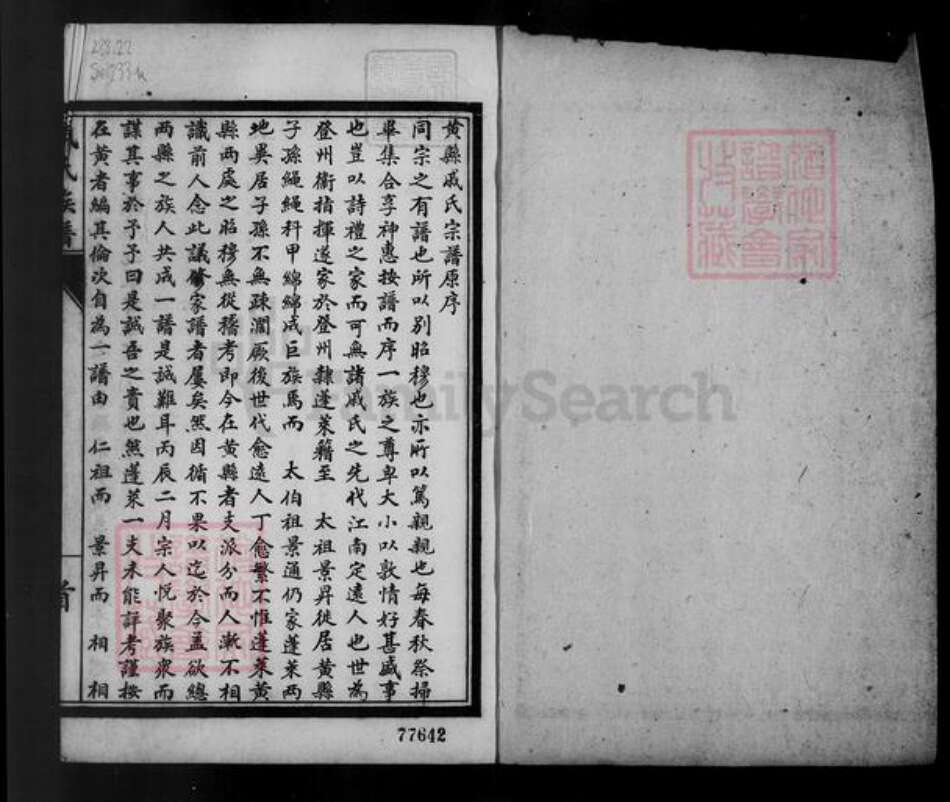 黄縣戚氏宗譜原序
同宗之有譜也所以別昭穆也亦所以篤親親也每春秋祭掃
畢集合享神惠按譜而序一族之尊卑大小以敦情好甚盛事
也豈以詩禮之家而可無諸戚氏之先代江南定遠人也世為
登州衞指揮遂家於登州隸蓬萊籍至 太祖景昇徙居黄縣
子孫繩繩科甲綿綿成巨族焉而 太伯祖景通仍家蓬萊兩
地異居子孫不無疎濶厥後世代愈遠人丁愈繁不惟蓬萊黄
縣兩處之昭穆無從稽考即今在黄縣者支派分而人漸不相
識前人念此議修家譜者屢矣然因循不果以迄於今孟欲總
兩縣之族人共成一譜是誠難耳丙辰二月宗人悅聚族衆而
謀其事於予予曰是誠吾之責也然蓬萊一支未能詳考謹按
在黄者編其倫次自為一譜由 仁祖而 景昇而 相 相
氏族譜
首
77642
FamilySearch